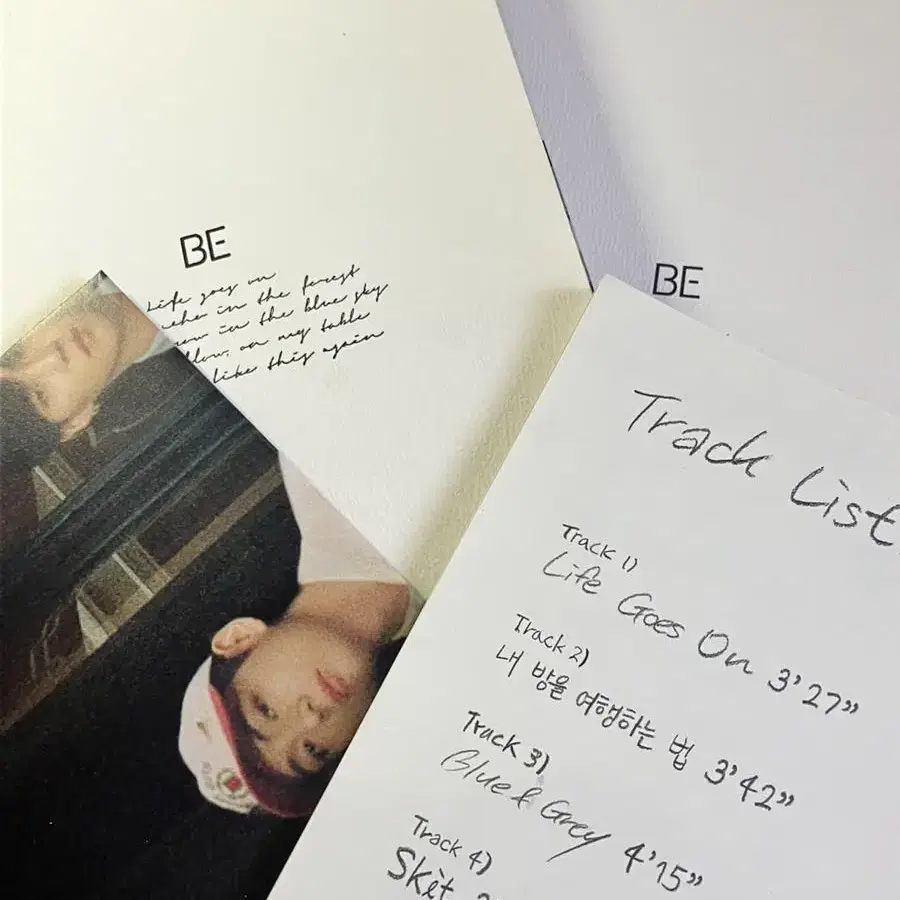 BE
Life goes on
in the forest
in the blue sky
on my table
like this again
BE
Track List
Track 1)
Life Goes On 3'27"
Track 2)
내 방을 여행하는 법 3'42"
Track 3)
Blue & Grey 4'15"
Track 4)
Skit